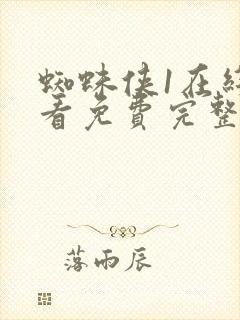 蜘蛛侠1在
看免費完整
落雨辰